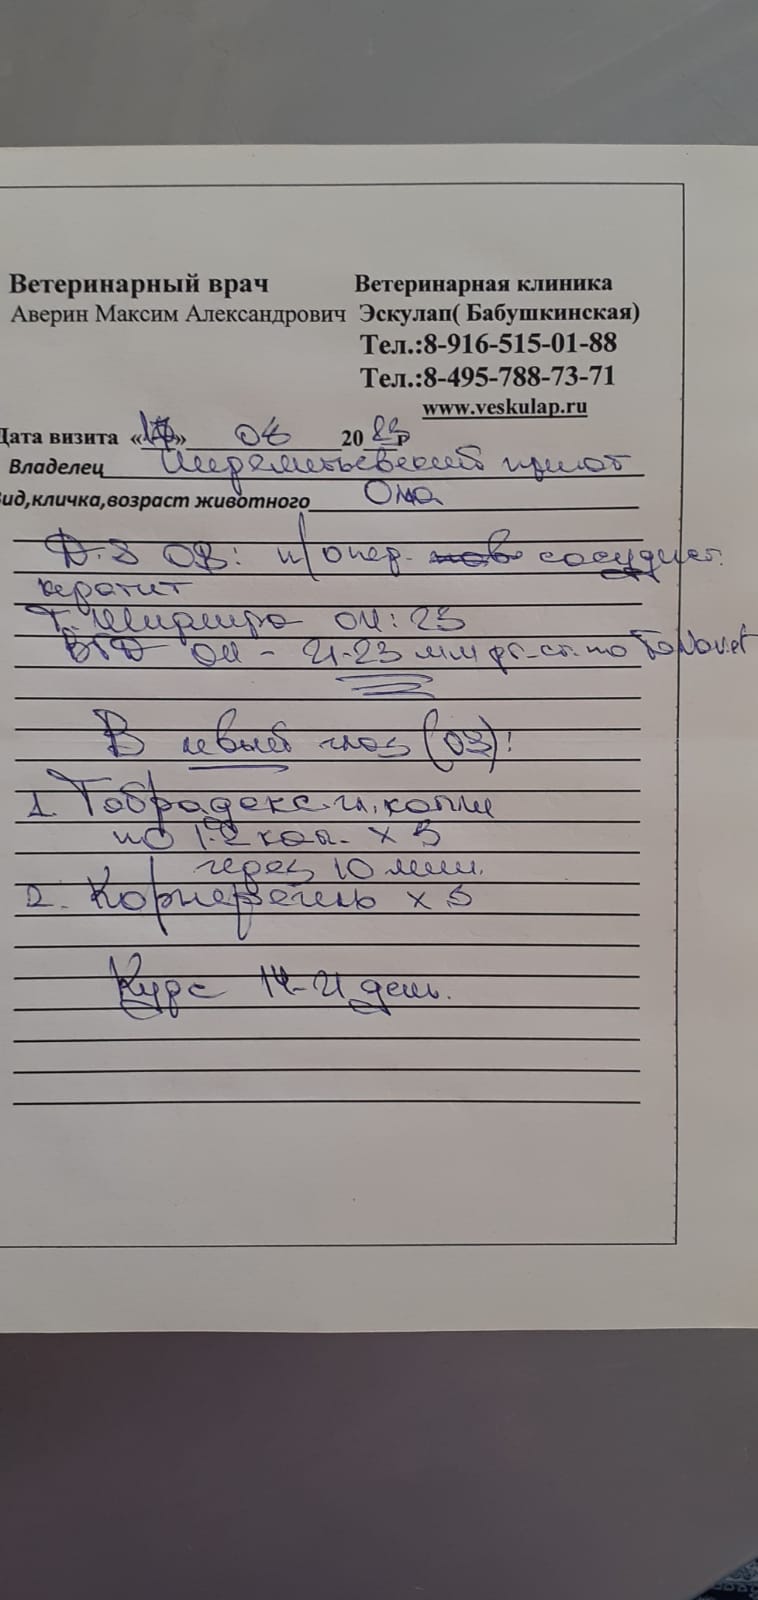 Ветеринарный врач
Ветеринарная клиника
Аверин Максим Александрович
Эскулап( Бабушкинская)
Тел.:8-916-515-01-88
Тел.:8-495-788-73-71
www.veskulap.ru
Дата визита « » 20 23 г
Владелец приют
вид,кличка,возраст животного Ома
D.S OS: п/опер. сосудист.
кератит
Т. Ширмера OU: 23
ВГД OU - 21-23 мм рт. ст. по TonoVet
В левый глаз (OS)!
1. Тобрадекс гл. капли
по 1-2 кап. x 3
через 10 мин.
2. Корнерегель x 3
Курс 14-21 день.